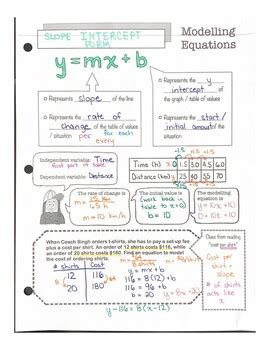 SLOPE INTERCEPT
FORM
Modelling
Equations
y=mx+b
Represents slope
of the line
Represents the rate of
change of the table of values
/ situation per for each
every
Represents the y
intercept of the
graph / table of values
Represents the start/
initial amount of the
situation
Independent variable: Time
first part of table
Dependent variable: Distance
+1.5 +1.5 +1.5
Time (h) x 0 1.5 3.0 4.5 6.0
Distance (km) 25 40 55 70
The rate of change is
m = 15 km
1.5 h
m = 10 km/h
The initial value is
(work back in
table to x=0)
b = 10
The modelling
equation is
y = 10x + 10
When Coach Singh orders t-shirts, she has to pay a set-up fee
plus a cost per shirt. On her last two orders,
an order of 12 shirts costs $116, while
an order of 20 shirts costs $180. Find an equation to model
the cost of ordering shirts.
# shirts Cost
12 116
20 180
8
y = mx + b
116 = 8(12) + b
116 = 96 + b
b = 20
y-116 = 8(x-12)
Clues from reading:
"cost per shirt"
Cost per
shirt =
slope
# of shirts
acts like
x